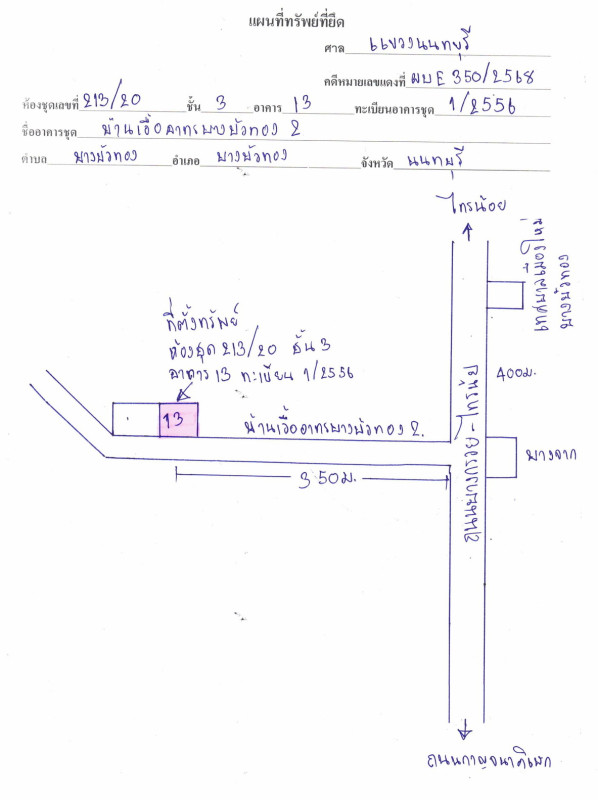 แผนที่ทรัพย์ที่ยึด
ศาล แขวงนนทบุรี
คดีหมายเลขแดงที่ ผบE 350/2568
ห้องชุดเลขที่ 213/20 ชั้น 3 อาคาร 13 ทะเบียนอาคารชุด 1/2556
ชื่ออาคารชุด บ้านเอื้ออาทรบางบัวทอง 2
ตำบล บางบัวทอง อำเภอ บางบัวทอง จังหวัด นนทบุรี
ไทรน้อย
เทศบาลเมืองใหม่
บางบัวทอง
ที่ตั้งทรัพย์
ห้องชุด 213/20 ชั้น 3
อาคาร 13 ทะเบียน 1/2556
400ม.
13
บ้านเอื้ออาทรบางบัวทอง 2.
บางจาก
350ม.
ถนนบางกรวย-ไทรน้อย
ถนนกาญจนาภิเษก